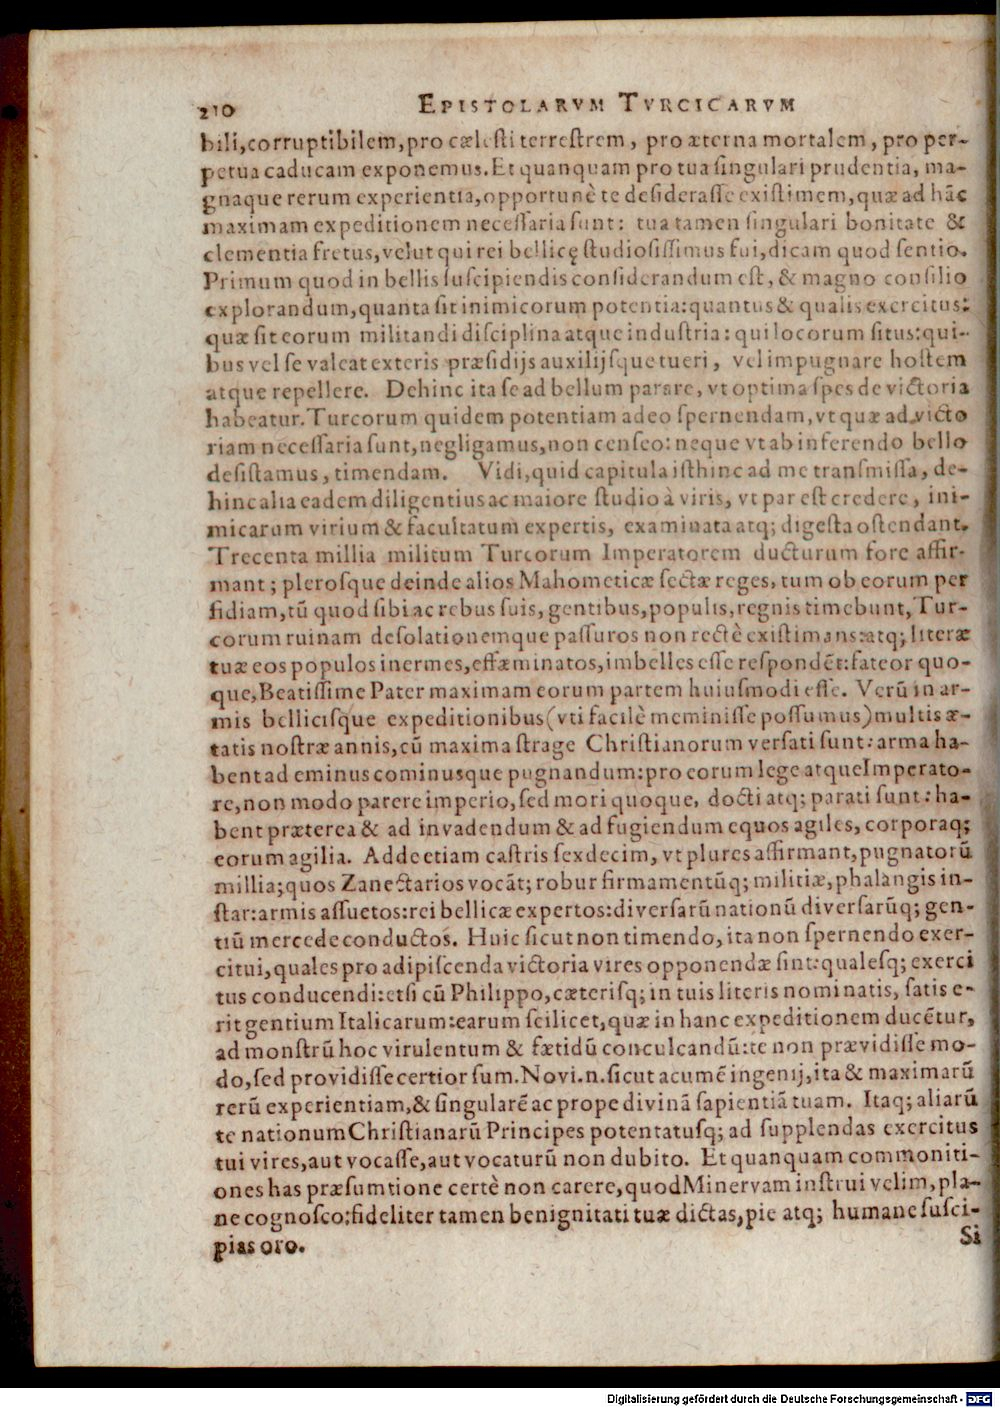 210 EPISTOLARVM TVRCICARVM
bili,corruptibilem,pro cælesti terrestrem, pro æterna mortalem, pro per-
petua caducam exponemus. Et quanquam pro tua singulari prudentia, ma-
gnaque rerum experientia, opportunè te desiderasse existimem, quæ ad hāc
maximam expeditionem necessaria sunt: tua tamen singulari bonitate &
clementia fretus, velut qui rei bellicę studiosissimus fui, dicam quod sentio.
Primum quod in bellis suscipiendis considerandum est, & magno consilio
explorandum, quanta sit inimicorum potentia: quantus & qualis exercitus:
quæ sit eorum militandi disciplina atque industria: qui locorum situs: qui-
bus vel se valeat exteris præsidijs auxilijsque tueri, vel impugnare hostem
atque repellere. Dehinc ita se ad bellum parare, vt optima spes de victoria
habeatur. Turcorum quidem potentiam adeo spernendam, vt quæ ad victo
riam necessaria sunt, negligamus, non censeo: neque vt ab inferendo bello
desistamus, timendam. Vidi, quid capitula isthinc ad me transmissa, de-
hinc alia eadem diligentius ac maiore studio à viris, vt par est credere, ini-
micarum virium & facultatum expertis, examinata atq; digesta ostendant.
Trecenta millia militum Turcorum Imperatorem ducturum fore affir-
mant; plerosque deinde alios Mahometicæ sectæ reges, tum ob eorum per
fidiam, tū quod sibi ac rebus suis, gentibus, populis, regnis timebunt, Tur-
corum ruinam desolationemque passuros non rectè existimans: atq; literæ
tuæ eos populos inermes, effæminatos, imbelles esse respondēt: fateor quo-
que, Beatissime Pater maximam eorum partem huiusmodi esse. Verū in ar-
mis bellicisque expeditionibus (vti facilè meminisse possumus) multis æ-
tatis nostræ annis, cū maxima strage Christianorum versati sunt: arma ha-
bent ad eminus cominusque pugnandum: pro eorum lege atque Imperato-
re, non modo parere imperio, sed mori quoque, docti atq; parati sunt: ha-
bent præterea & ad invadendum & ad fugiendum equos agiles, corporaq;
eorum agilia. Adde etiam castris sexdecim, vt plures affirmant, pugnatorū
millia; quos Zanectarios vocāt; robur firmamentūq; militiæ, phalangis in-
star: armis assuetos: rei bellicæ expertos: diversarū nationū diversarūq; gen-
tiū mercede conductos. Huic sicut non timendo, ita non spernendo exer-
citui, quales pro adipiscenda victoria vires opponendæ sint: qualesq; exerci
tus conducendi: etsi cū Philippo, cæterisq; in tuis literis nominatis, satis e-
rit gentium Italicarum: earum scilicet, quæ in hanc expeditionem ducētur,
ad monstrū hoc virulentum & fætidū conculcandū: te non prævidisse mo-
do, sed providisse certior sum. Novi.n. sicut acumē ingenij, ita & maximarū
rerū experientiam, & singularē ac prope divinā sapientiā tuam. Itaq; aliarū
te nationum Christianarū Principes potentatusq; ad supplendas exercitus
tui vires, aut vocasse, aut vocaturū non dubito. Et quanquam commoniti-
ones has præsumtione certè non carere, quod Minervam instrui velim, pla-
ne cognosco; fideliter tamen benignitati tuæ dictas, pie atq; humane susci-
pias oro.
Si
Digitalisierung gefördert durch die Deutsche Forschungsgemeinschaft - DFG